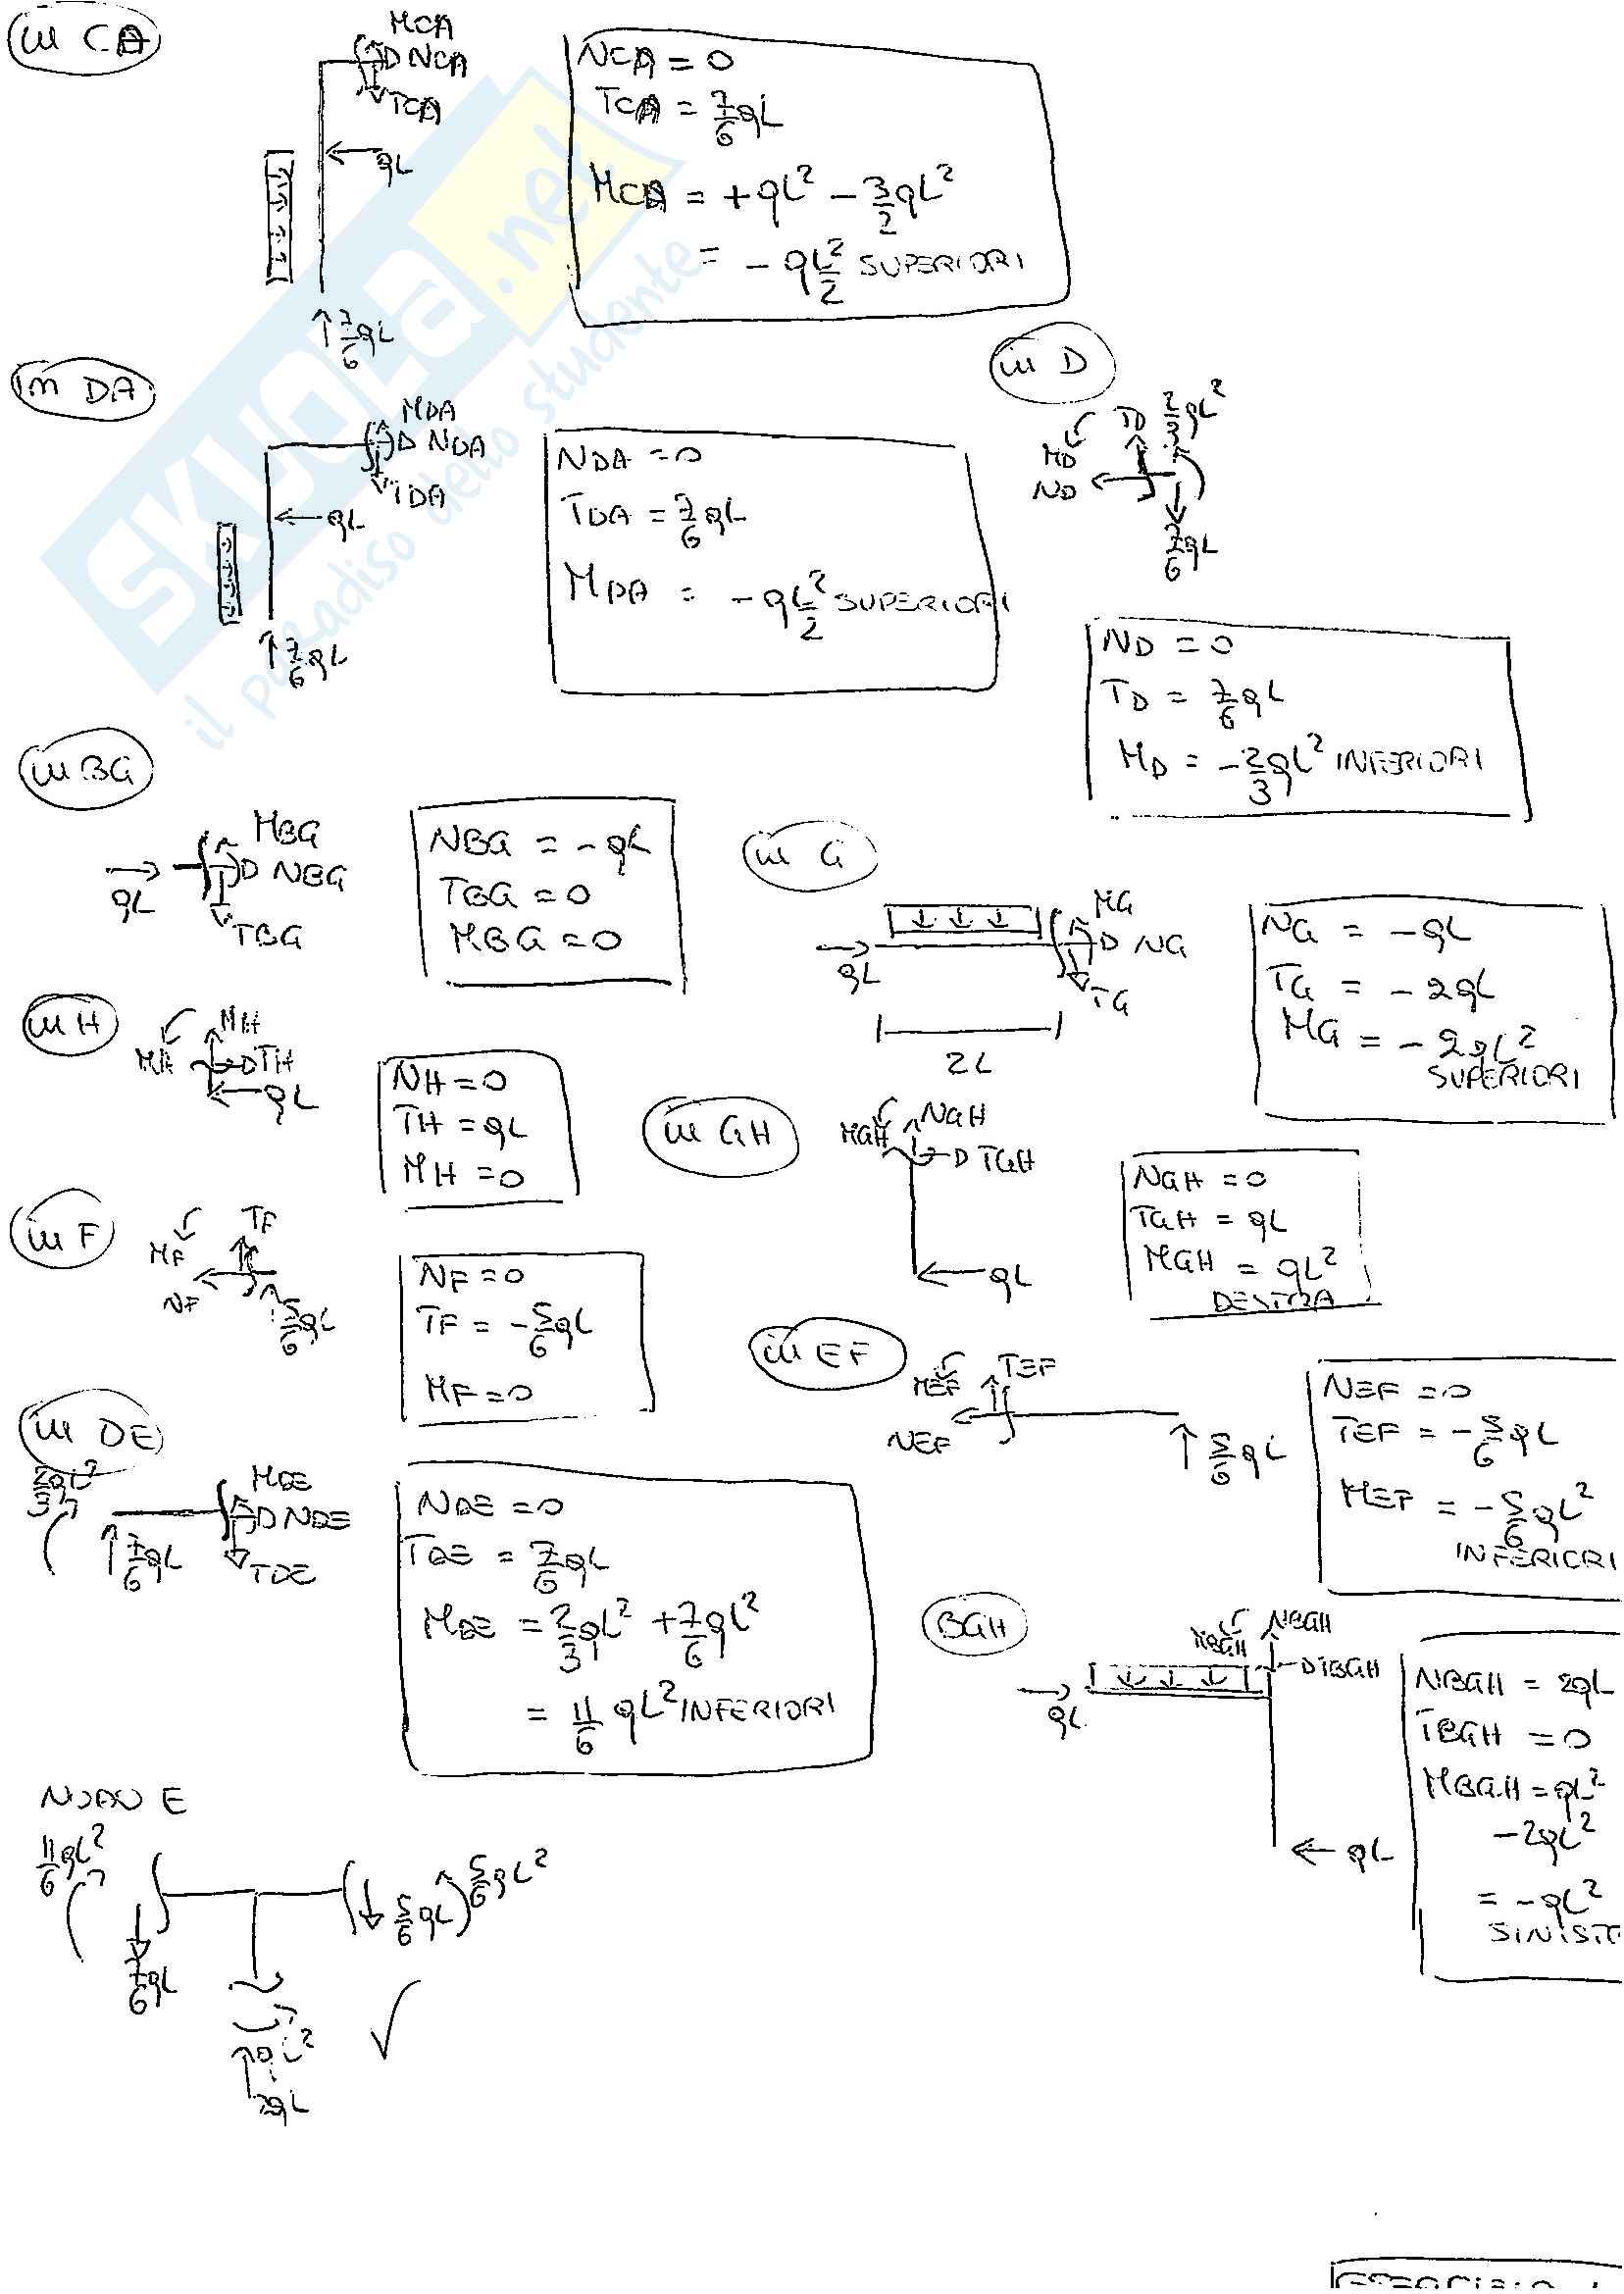 in CA
MCA
NCA
TCA
qL
7/6 qL
NCA = 0
TCA = 7/6 qL
MCA = +qL² - 3/2 qL²
= - qL²/2 SUPERIORI
SKUOLA.net
il paradiso dello studente
in DA
MDA
NDA
TDA
qL
7/6 qL
NDA = 0
TDA = 7/6 qL
MDA = - qL²/2 SUPERIORI
in D
MD
TD
2/3 qL²
ND
7/6 qL
ND = 0
TD = 7/6 qL
MD = - 2/3 qL² INFERIORI
in BG
MBG
NBG
qL
TBG
NBG = - qL
TBG = 0
MBG = 0
in G
MG
NG
qL
TG
2L
NG = - qL
TG = - 2qL
MG = - 2qL²
SUPERIORI
in H
MH
MH
TH
qL
NH = 0
TH = qL
MH = 0
in GH
NGH
MGH
TGH
qL
NGH = 0
TGH = qL
MGH = qL²
DESTRA
in F
TF
MF
NF
5/6 qL
NF = 0
TF = - 5/6 qL
MF = 0
in EF
MEF
TEF
NEF
5/6 qL
NEF = 0
TEF = - 5/6 qL
MEF = - 5/6 qL²
INFERIORI
in DE
2/3 qL²
MDE
NDE
7/6 qL
TDE
NDE = 0
TDE = 7/6 qL
MDE = 2/3 qL² + 7/6 qL²
= 11/6 qL² INFERIORI
BGH
MBGH
NBGH
TBGH
qL
qL
NBGH = 2qL
TBGH = 0
MBGH = qL²
- 2qL²
= - qL²
SINIST
NODO E
11/6 qL²
7/6 qL
5/6 qL
5/6 qL²
qL²
2qL